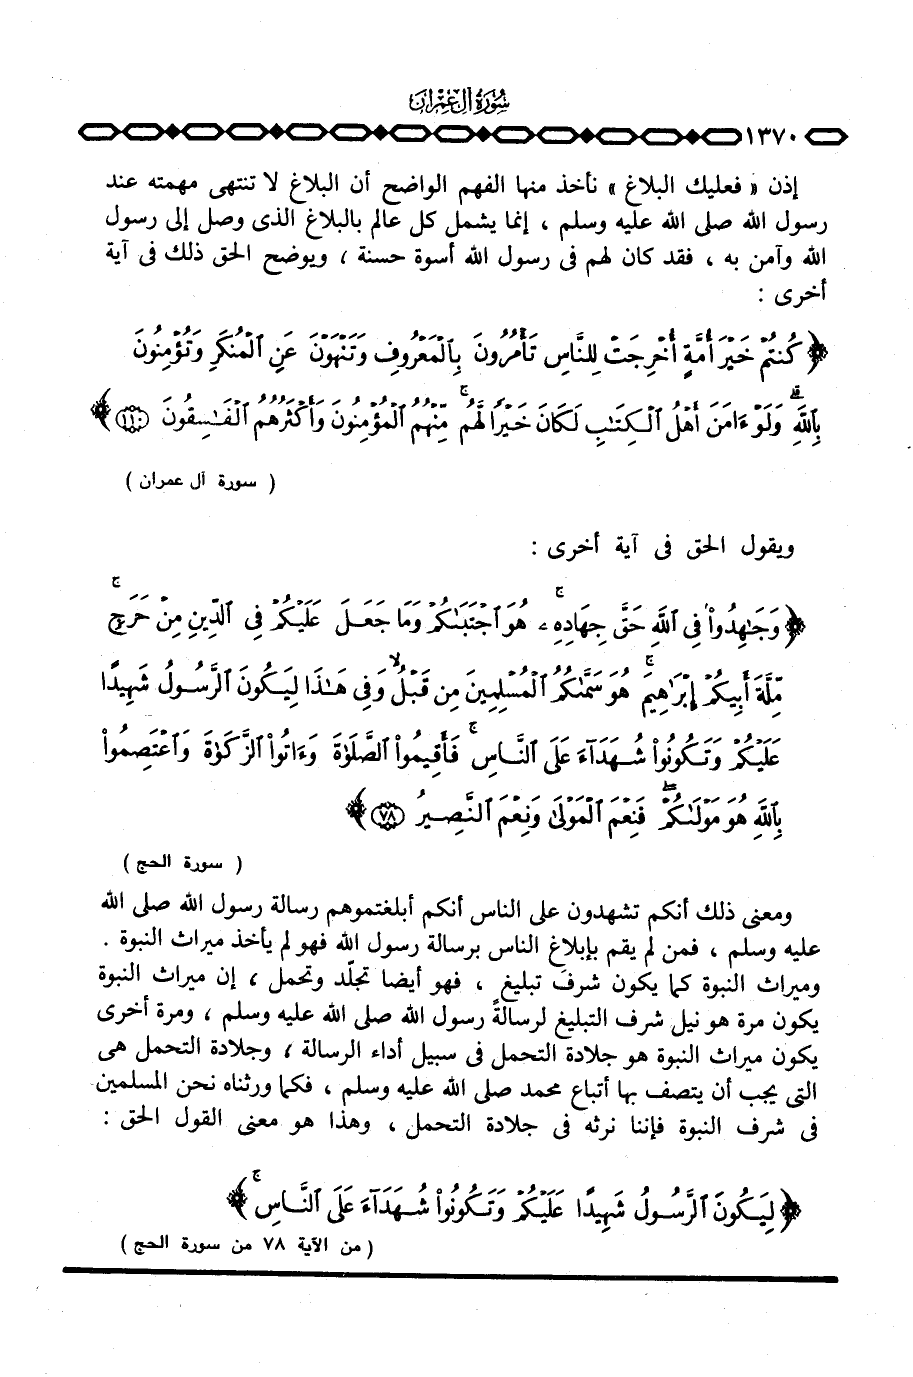 سُورَةُ آلِ عِمْرَان
١٣٧٠
إذن « فعليك البلاغ » نأخذ منها الفهم الواضح أن البلاغ لا تنتهى مهمته عند
رسول الله صلى الله عليه وسلم ، إنما يشمل كل عالم بالبلاغ الذى وصل إلى رسول
الله وآمن به ، فقد كان لهم فى رسول الله أسوة حسنة ، ويوضح الحق ذلك فى آية
أخرى :
﴿ كُنتُمْ خَيْرَ أُمَّةٍ أُخْرِجَتْ لِلنَّاسِ تَأْمُرُونَ بِالْمَعْرُوفِ وَتَنْهَوْنَ عَنِ الْمُنكَرِ وَتُؤْمِنُونَ
بِاللَّهِ ۗ وَلَوْ ءَامَنَ أَهْلُ الْكِتَٰبِ لَكَانَ خَيْرًا لَّهُم ۚ مِّنْهُمُ الْمُؤْمِنُونَ وَأَكْثَرُهُمُ الْفَٰسِقُونَ ١١٠ ﴾
( سورة آل عمران )
ويقول الحق فى آية أخرى :
﴿ وَجَٰهِدُوا۟ فِى اللَّهِ حَقَّ جِهَادِهِۦ ۚ هُوَ اجْتَبَىٰكُمْ وَمَا جَعَلَ عَلَيْكُمْ فِى الدِّينِ مِنْ حَرَجٍ ۚ
مِّلَّةَ أَبِيكُمْ إِبْرَٰهِيمَ ۚ هُوَ سَمَّىٰكُمُ الْمُسْلِمِينَ مِن قَبْلُ وَفِى هَٰذَا لِيَكُونَ الرَّسُولُ شَهِيدًا
عَلَيْكُمْ وَتَكُونُوا۟ شُهَدَآءَ عَلَى النَّاسِ ۚ فَأَقِيمُوا۟ الصَّلَوٰةَ وَءَاتُوا۟ الزَّكَوٰةَ وَاعْتَصِمُوا۟
بِاللَّهِ هُوَ مَوْلَىٰكُمْ ۖ فَنِعْمَ الْمَوْلَىٰ وَنِعْمَ النَّصِيرُ ٧٨ ﴾
( سورة الحج )
ومعنى ذلك أنكم تشهدون على الناس أنكم أبلغتموهم رسالة رسول الله صلى الله
عليه وسلم ، فمن لم يقم بإبلاغ الناس برسالة رسول الله فهو لم يأخذ ميراث النبوة .
وميراث النبوة كما يكون شرفَ تبليغ ، فهو أيضا تجلّد وتحمل ، إن ميراث النبوة
يكون مرة هو نيل شرف التبليغ لرسالةً رسول الله صلى الله عليه وسلم ، ومرة أخرى
يكون ميراث النبوة هو جلادة التحمل فى سبيل أداء الرسالة ، وجلادة التحمل هى
التى يجب أن يتصف بها أتباع محمد صلى الله عليه وسلم ، فكما ورثناه نحن المسلمين
فى شرف النبوة فإننا نرثه فى جلادة التحمل ، وهذا هو معنى القول الحق :
﴿ لِيَكُونَ الرَّسُولُ شَهِيدًا عَلَيْكُمْ وَتَكُونُوا۟ شُهَدَآءَ عَلَى النَّاسِ ۚ ﴾
( من الآية ٧٨ من سورة الحج )